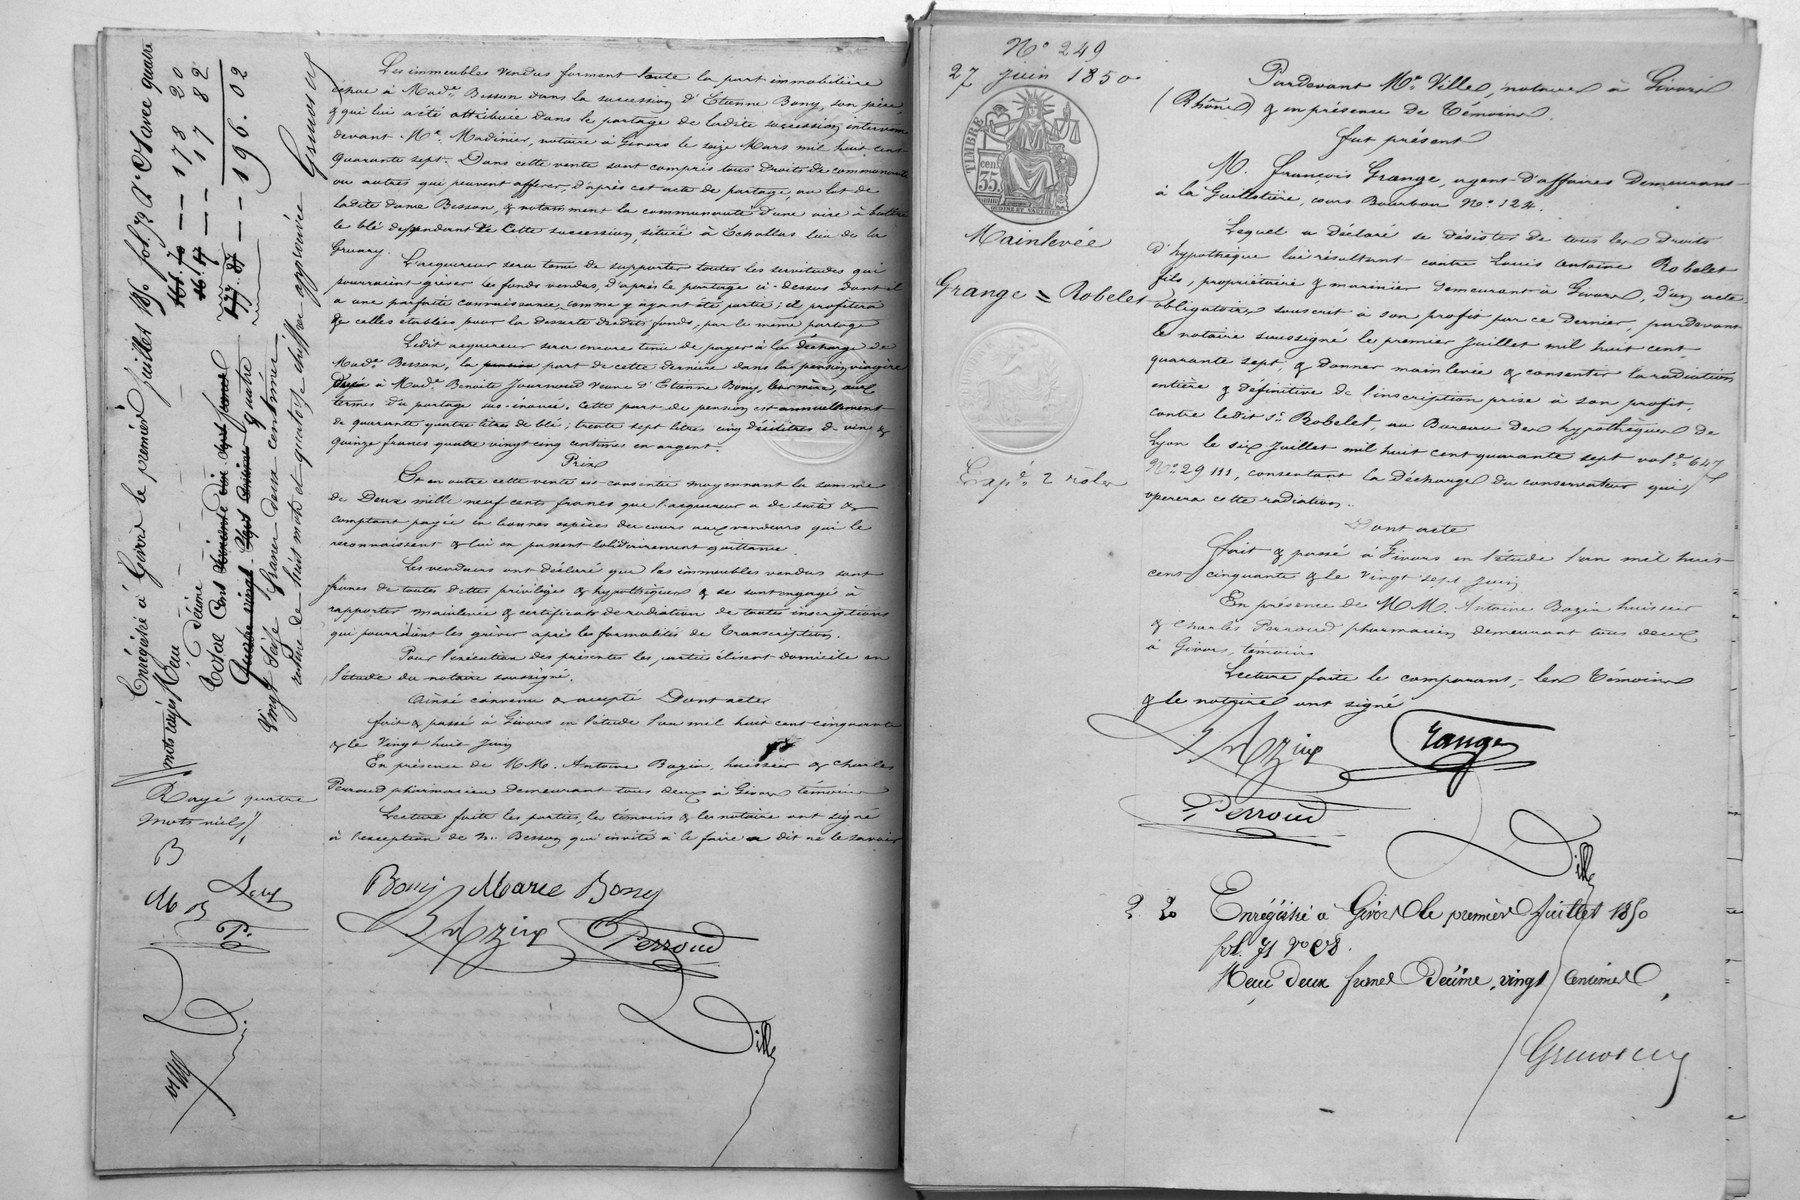 Les immeubles vendus forment toute la part immobilière
échue à Made. Besson dans la succession d'Etienne Bony, son père
& qui lui a été attribuée dans le partage de ladite succession intervenu
devant Me. Madinier, notaire à Givors le seize Mars mil huit cent
quarante sept. Dans cette vente sont compris tous droits de communauté
ou autres qui peuvent afférer, d'après cet acte de partage, au lot de
ladite dame Besson, & notamment la communauté d'une aire à battre
le blé dépendant de cette succession, située à Echallas lieu de la
L'acquéreur sera tenu de supporter toutes les servitudes qui
pourraient grèver les fonds vendus, d'après le partage ci-dessus dont il
a une parfaite connaissance, comme y ayant été partie; il profitera
de celles établies pour la desserte desdits fonds, par le même partage
Ledit acquéreur sera encore tenu de payer à la décharge de
Made. Besson, la pension part de cette dernière dans la pension viagère
à Made. Benoite Journoud veuve d'Etienne Bony, leur mère, aux
termes du partage sus-énoncé. Cette part de pension est annuellement
de quarante quatre litres de blé; trente sept litres cinq décilitres de vin &
quinze francs quatre vingt cinq centimes en argent.
Prix
Et en outre cette vente est consentie moyennant la somme
de Deux mille neuf cents francs que l'acquéreur a de suite &
comptant payée en bonnes espèces du cours aux vendeurs qui le
reconnaissent & lui en passent solidairement quittance.
Les vendeurs ont déclaré que les immeubles vendus sont
francs de toutes dettes privilèges & hypothèques & se sont engagés à
rapporter mainlevée & certificats de radiation de toutes inscriptions
qui pourraient les grèver après les formalités de transcription.
Pour l'exécution des présentes les parties élisent domicile en
l'étude du notaire soussigné.
Ainsi convenu & accepté Dont acte
fait & passé à Givors en l'étude l'an mil huit cent cinquante
& le vingt huit juin
En présence de MM. Antoine Bazin, huissier & Charles
Perroud pharmacien demeurant tous deux à Givors témoins
Lecture faite les parties, les témoins & le notaire ont signé
à l'exception de M. Besson qui invité à le faire a dit ne le savoir
Bony Marie Bony
Bazin Perroud
Ville
Enrégistré à Givors le premier Juillet 1850 fol. 73
178 20
17 82
196.02
Total Cent
quatre
Vingt Seize francs deux centimes
rature de huit mots et quatorze chiffres approuvée
Rayé quatre
mots nuls
B
M B
P.
Ville
No 249
27 juin 1850
TIMBRE
35
cen
Mainlevée
Grange = Robelet
Expé. 2 rôles
Pardevant Me. Ville, notaire à Givors
(Rhône) & en présence de témoins.
fut présent
M. François Grange, agent d'affaires demeurant
à la Guillotière, cours Bourbon No. 124.
Lequel a déclaré se désister de tous les droits
d'hypothèque lui résultant contre Louis Antoine Robelet
fils, propriétaire & marinier demeurant à Givors, d'un acte
obligatoire souscrit à son profit par ce dernier, pardevant
le notaire soussigné le premier Juillet mil huit cent
quarante sept, & donner mainlevée & consentir la radiation
entière & définitive de l'inscription prise à son profit,
contre ledit Sr. Robelet, au Bureau des hypothèques de
Lyon le six Juillet mil huit cent quarante sept vol. 647
No. 29 111, consentant la décharge du conservateur qui
opèrera cette radiation.
Dont acte
fait & passé à Givors en l'étude l'an mil huit
cent cinquante & le vingt sept Juin
En présence de MM. Antoine Bazin huissier
& Charles Perroud pharmacien demeurant tous deux
à Givors, témoins
Lecture faite le comparant, les témoins
& le notaire ont signé
Bazin Grange
Perroud
Ville
Enrégistré à Givors le premier Juillet 1850
fol. 71
Reçu deux francs décime, vingt centimes